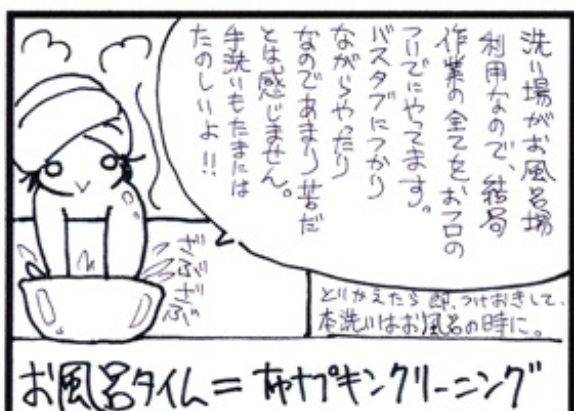 洗い場がお風呂場
利用なので、結局
作業の全てをおフロの
ついでにやってます。
バスタブにつかり
ながらやったり
なのであまり苦だ
とは感じません。
手洗いもたまには
たのしいよ!!
ざぶざぶ
とりかえたら即、つけおきして、
本洗いはお風呂の時に。
お風呂タイム=布ナプキンクリーニング